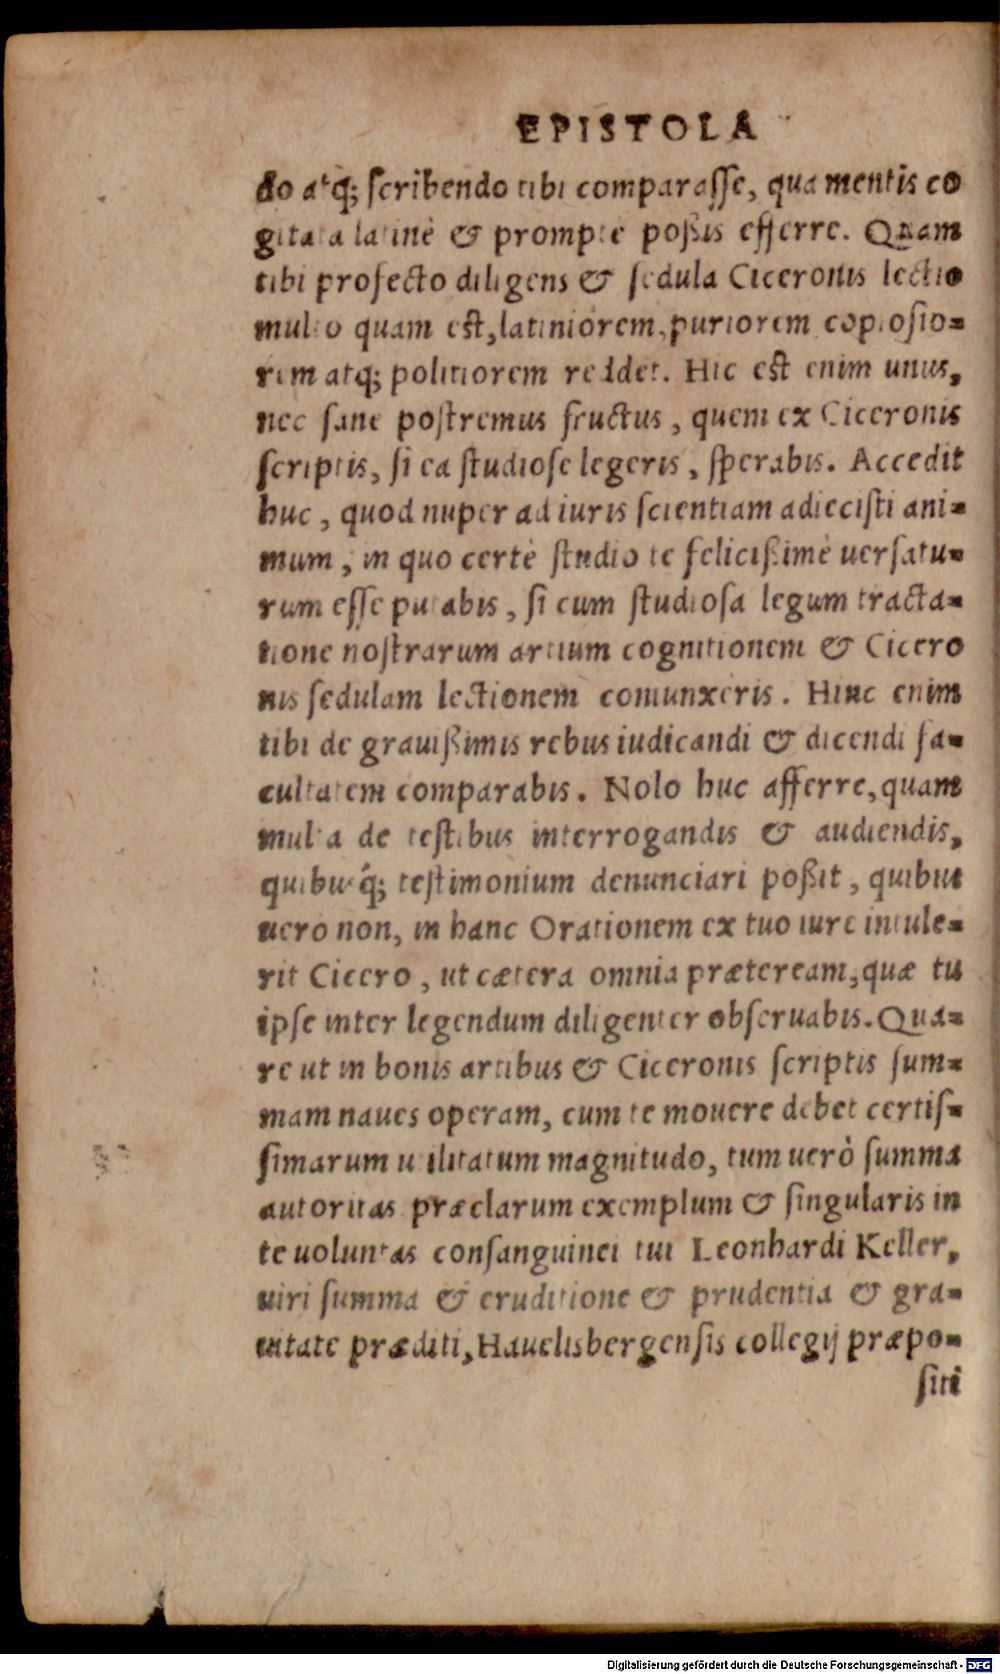 EPISTOLA
do atq́; ſcribendo tibi comparaſſe, qua mentis co
gitata latinè & prompte poßis efferre. Quam
tibi profecto diligens & ſedula Ciceronis lectio
multo quam eſt, latiniorem, puriorem copioſio-
rem atq́; politiorem reddet. Hic eſt enim unus,
nec ſane poſtremus fructus, quem ex Ciceronis
ſcriptis, ſi ea ſtudioſe legeris, ſperabis. Accedit
huc, quod nuper ad iuris ſcientiam adieciſti ani-
mum, in quo certè ſtudio te felicißimè uerſatu-
rum eſſe putabis, ſi cum ſtudioſa legum tracta-
tione noſtrarum artium cognitionem & Cicero
nis ſedulam lectionem coniunxeris. Hinc enim
tibi de grauißimis rebus iudicandi & dicendi fa-
cultatem comparabis. Nolo huc afferre, quam
multa de teſtibus interrogandis & audiendis,
quibusq́; teſtimonium denunciari poßit, quibus
uero non, in hanc Orationem ex tuo iure intule-
rit Cicero, ut cætera omnia præteream, quæ tu
ipſe inter legendum diligenter obſeruabis. Qua-
re ut in bonis artibus & Ciceronis ſcriptis ſum-
mam naues operam, cum te mouere debet certiſ-
ſimarum utilitatum magnitudo, tum uerò ſumma
autoritas præclarum exemplum & ſingularis in
te uoluntas conſanguinei tui Leonhardi Keller,
uiri ſumma & eruditione & prudentia & gra-
uitate præditi, Hauelisbergenſis collegij præpo-
ſiti
Digitalisierung gefördert durch die Deutsche Forschungsgemeinschaft - DFG